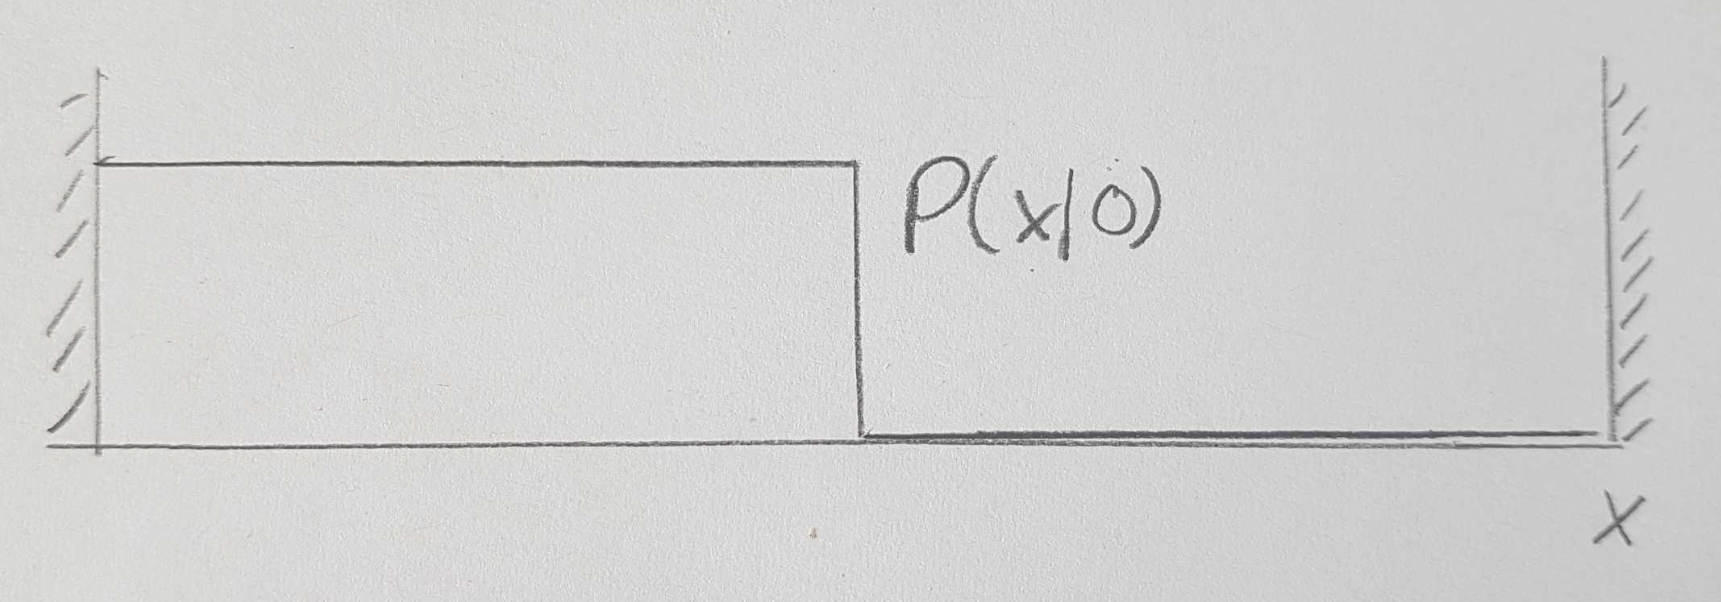 P(x|0)
x